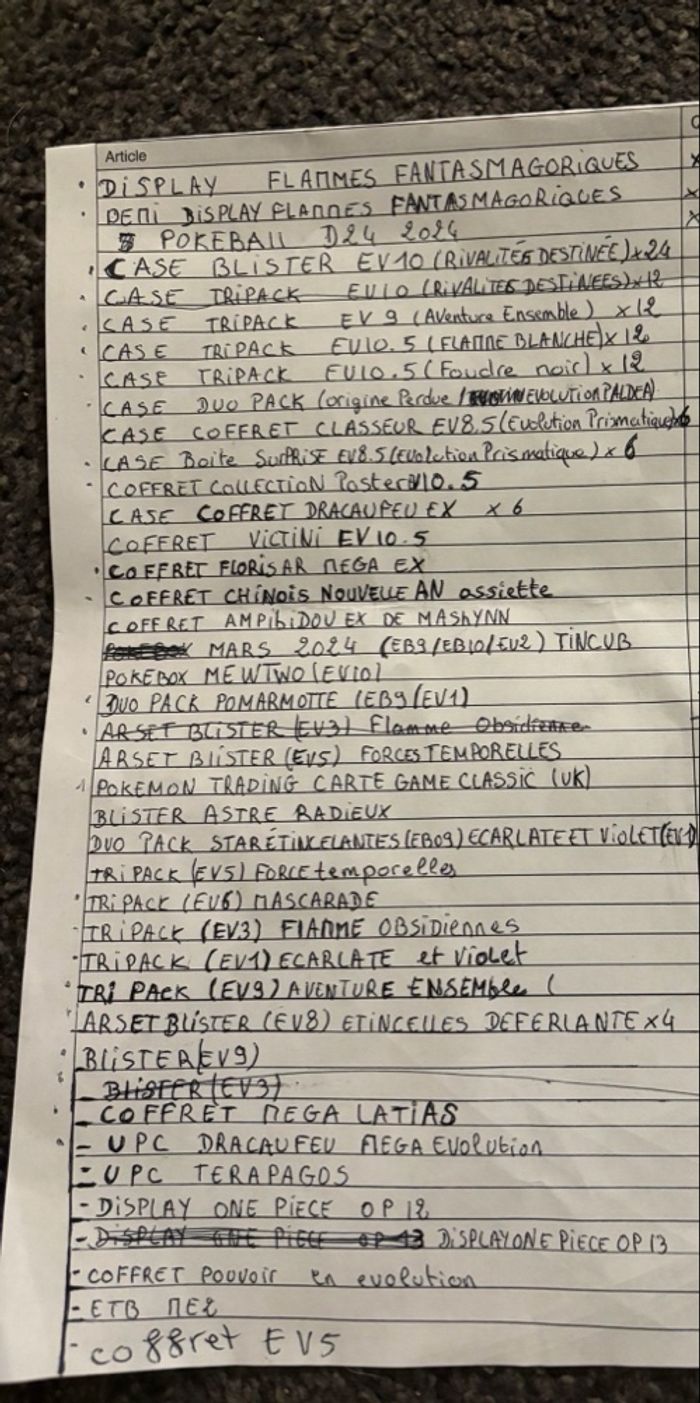 Article
DISPLAY FLAMMES FANTASMAGORIQUES
DEMI DISPLAY FLAMMES FANTASMAGORIQUES
POKEBALL D24 2024
CASE BLISTER EV10 (RIVALITÉS DESTINÉE) x24
CASE TRIPACK EV10 (RIVALITES DESTINEES) x12
CASE TRIPACK EV 9 (Aventure Ensemble) x12
CASE TRIPACK EV10.5 (FLAMME BLANCHE) x 12
CASE TRIPACK EV10.5 (Foudre noir) x 12
CASE DUO PACK (origine Perdue / EVOLUTION PALDEA)
CASE COFFRET CLASSEUR EV8.5 (Evolution Prismatique) x6
CASE Boite SURPRISE EV8.5 (Evolution Prismatique) x 6
COFFRET COLLECTION Poster 10.5
CASE COFFRET DRACAUFEU EX x 6
COFFRET VICTINI EV10.5
COFFRET FLORISAR MEGA EX
COFFRET CHINOIS NOUVELLE AN assiette
COFFRET AMPIBIDOU EX DE MASHYNN
POKEBOX MARS 2024 (EB9/EB10/EV2) TINCUB
POKEBOX MEWTWO (EV10)
DUO PACK POMARMOTTE (EB9/EV1)
ARSET BLISTER (EV3) Flamme Obsidienne
ARSET BLISTER (EV5) FORCES TEMPORELLES
POKEMON TRADING CARTE GAME CLASSIC (UK)
BLISTER ASTRE RADIEUX
DUO PACK STAR ÉTINCELANTES (EB09) ECARLATE ET VIOLET (EV1)
TRIPACK (EV5) FORCE temporelles
TRIPACK (EV6) MASCARADE
TRIPACK (EV3) FLAMME OBSIDIENNES
TRIPACK (EV1) ECARLATE et Violet
TRI PACK (EV9) AVENTURE ENSEMBLE (
ARSET BLISTER (EV8) ETINCELLES DEFERLANTE x4
BLISTER (EV9)
- BLISTER (EV3)
- COFFRET MEGA LATIAS
- UPC DRACAUFEU MEGA EVOLUTION
- UPC TERAPAGOS
- DISPLAY ONE PIECE OP 12
- DISPLAY ONE PIECE OP 13 DISPLAY ONE PIECE OP 13
- COFFRET POUVOIR en evolution
- ETB ME2
- coffret EV5